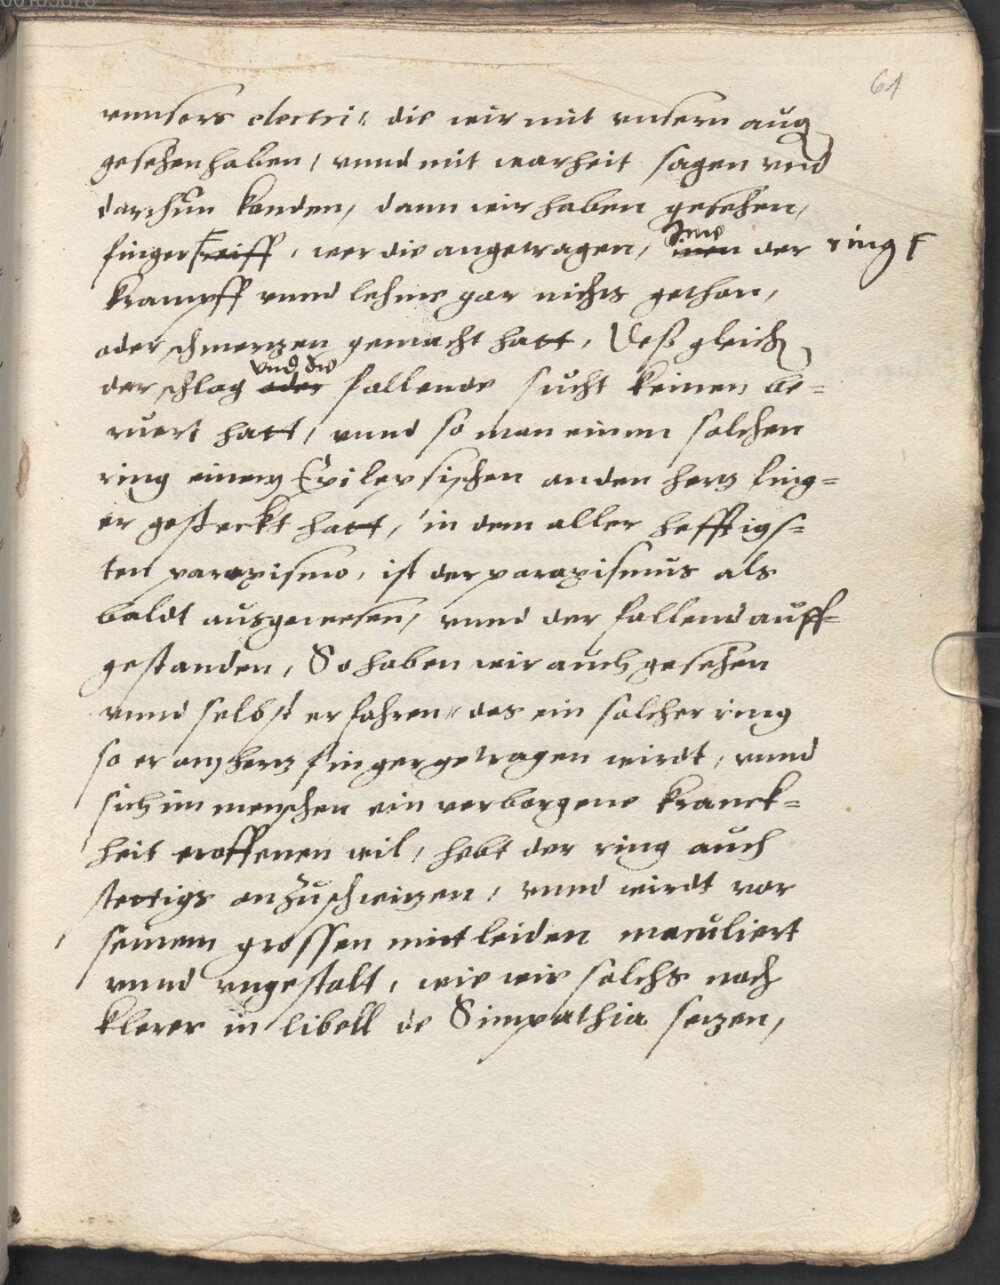 61
vnnsers electri, die wir mit vnsern aug
gesehen haben, vnnd mit warheit sagen vnd
darthun konden, dann wir haben gesehen,
finger reiff, wer die angetragen, Ime inen der ring
krampff vnnd lehme gar nichts gethon,
oder schmertzen gemacht hatt, Deß gleich
vnd die
der schlag oder fallende sucht keinen be=
ruert hatt, vnnd so man einem solchen
ring einem Epilepsischen an den hertz fing=
er gesteckt hatt, in dem aller hefftigs=
ten paroxismo, ist der paroxismus als
baldt ausgewesen, vnnd der fallend auff=
gestanden, So haben wir auch gesehen
vnnd selbst erfahren, das ein solcher ring
so er am hertz finger getragen wirdt, vnnd
sich im menschen ein verborgene kranck=
heit eroffenen wil, hebt der ring auch
stettigs an zu schwitzen, vnnd wirdt vor
seinem grossen mitleiden maculiert
vnnd vngestalt, wie wir solchs noch
klerer in libell de Simpathia setzen,